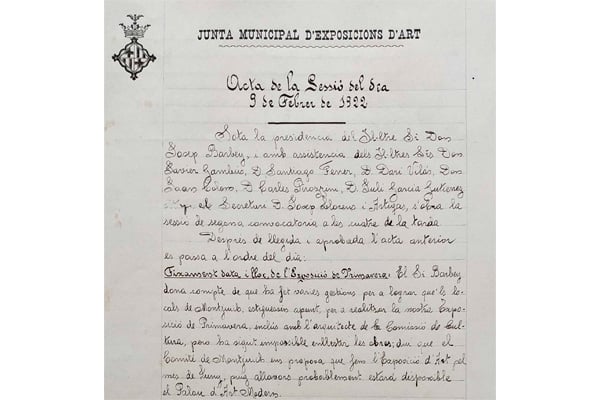 JUNTA MUNICIPAL D'EXPOSICIONS D'ART
Acta de la Sessió del dia
9 de Febrer de 1922
Sota la presidencia del Il·ltre Sr. Don
Josep Barbey, i amb assistencia dels Il·ltres Srs. Don
Xavier Gambús, D. Santiago Ferrer, D. Darí Vilás, Don
Joan Colom, D. Carles Pirozzini, D. Juli García Gutierrez
el Secretari D. Josep Llorens i Artigas, s'obra la
sessió de segona convocatoria a les cuatre de la tarda.
Despres de llegida i aprobada l'acta anterior
es passa a l'ordre del dia:
Finansament data i lloc de l'Exposició de Primavera: El Sr Barbey
dona compte de que ha fet varies gestions per a lograr que'ls lo-
cals de Montjuich, estiguessin apunt, per a realitzar la nostra Expo-
sició de Primavera, inclús amb l'arquitecte de la Comissió de Cul-
tura, pero ha sigut impossible enllestir les obres; diu que el
Comité de Montjuich ens proposa que fem l'Exposició d'Art pel
mes de Juny, puig allavors probablement estará disponible
el Palau d'Art Modern.